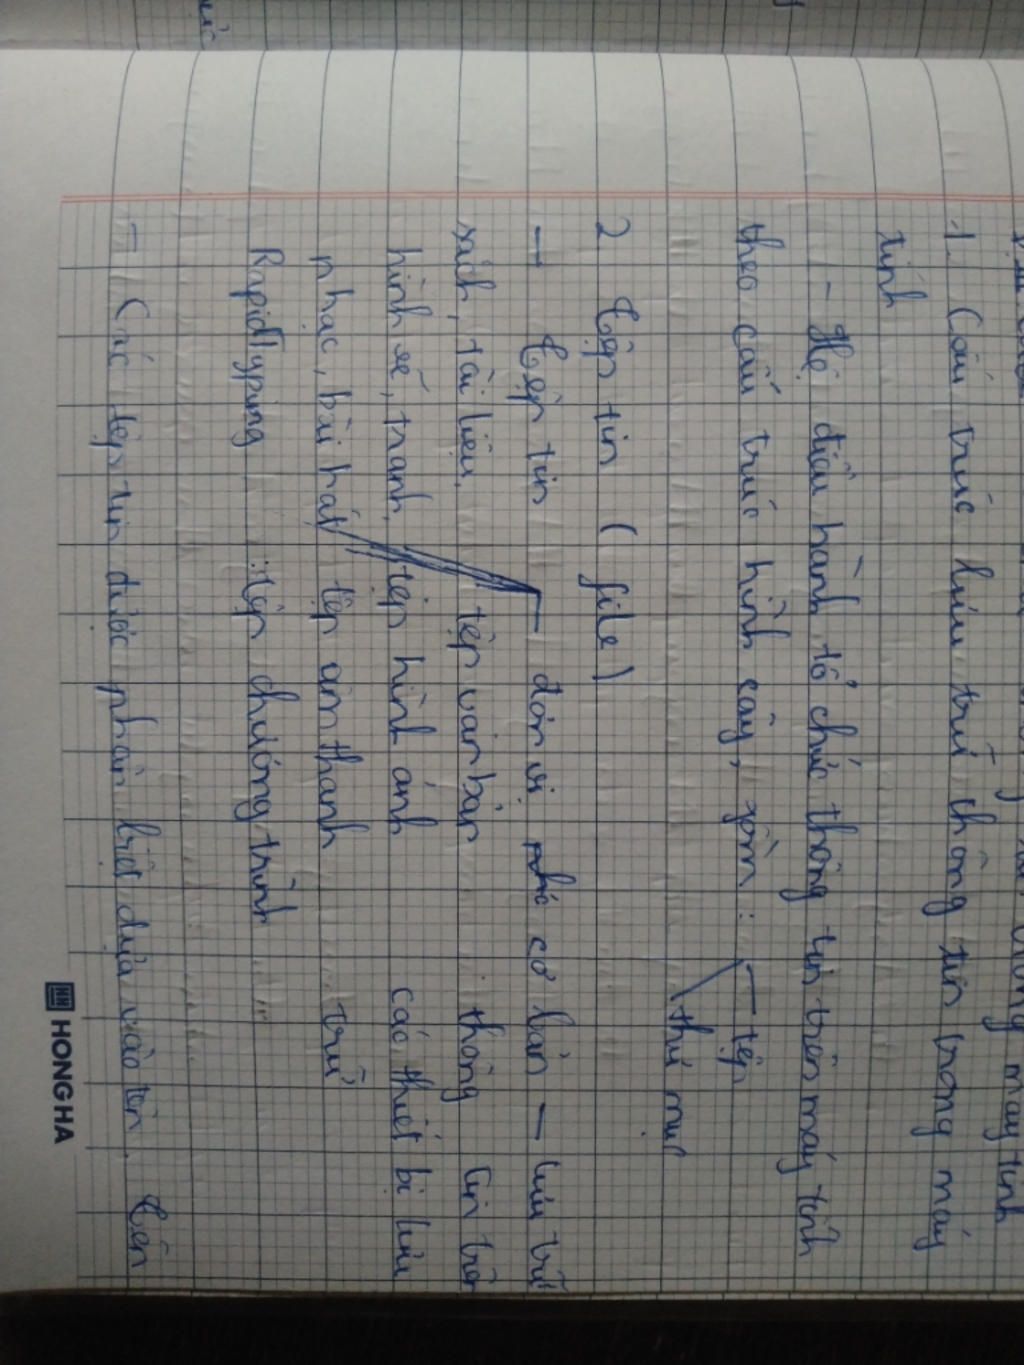 máy tính
1. Cấu trúc lưu trữ thông tin trong máy
tính
- Hệ điều hành tổ chức thông tin trên máy tính
theo cấu trúc hình cây, gồm : - tệp
thư mục
2 Tệp tin ( file )
- Tệp tin - đơn vị cơ bản - lưu trữ
sách, tài liệu, tệp văn bản thông tin trên
hình vẽ, tranh, tệp hình ảnh các thiết bị lưu
nhạc, bài hát tệp âm thanh trữ
RapidTyping : tệp chương trình
- Các tệp tin được phân biệt dựa vào tên. Tên
HONG HA